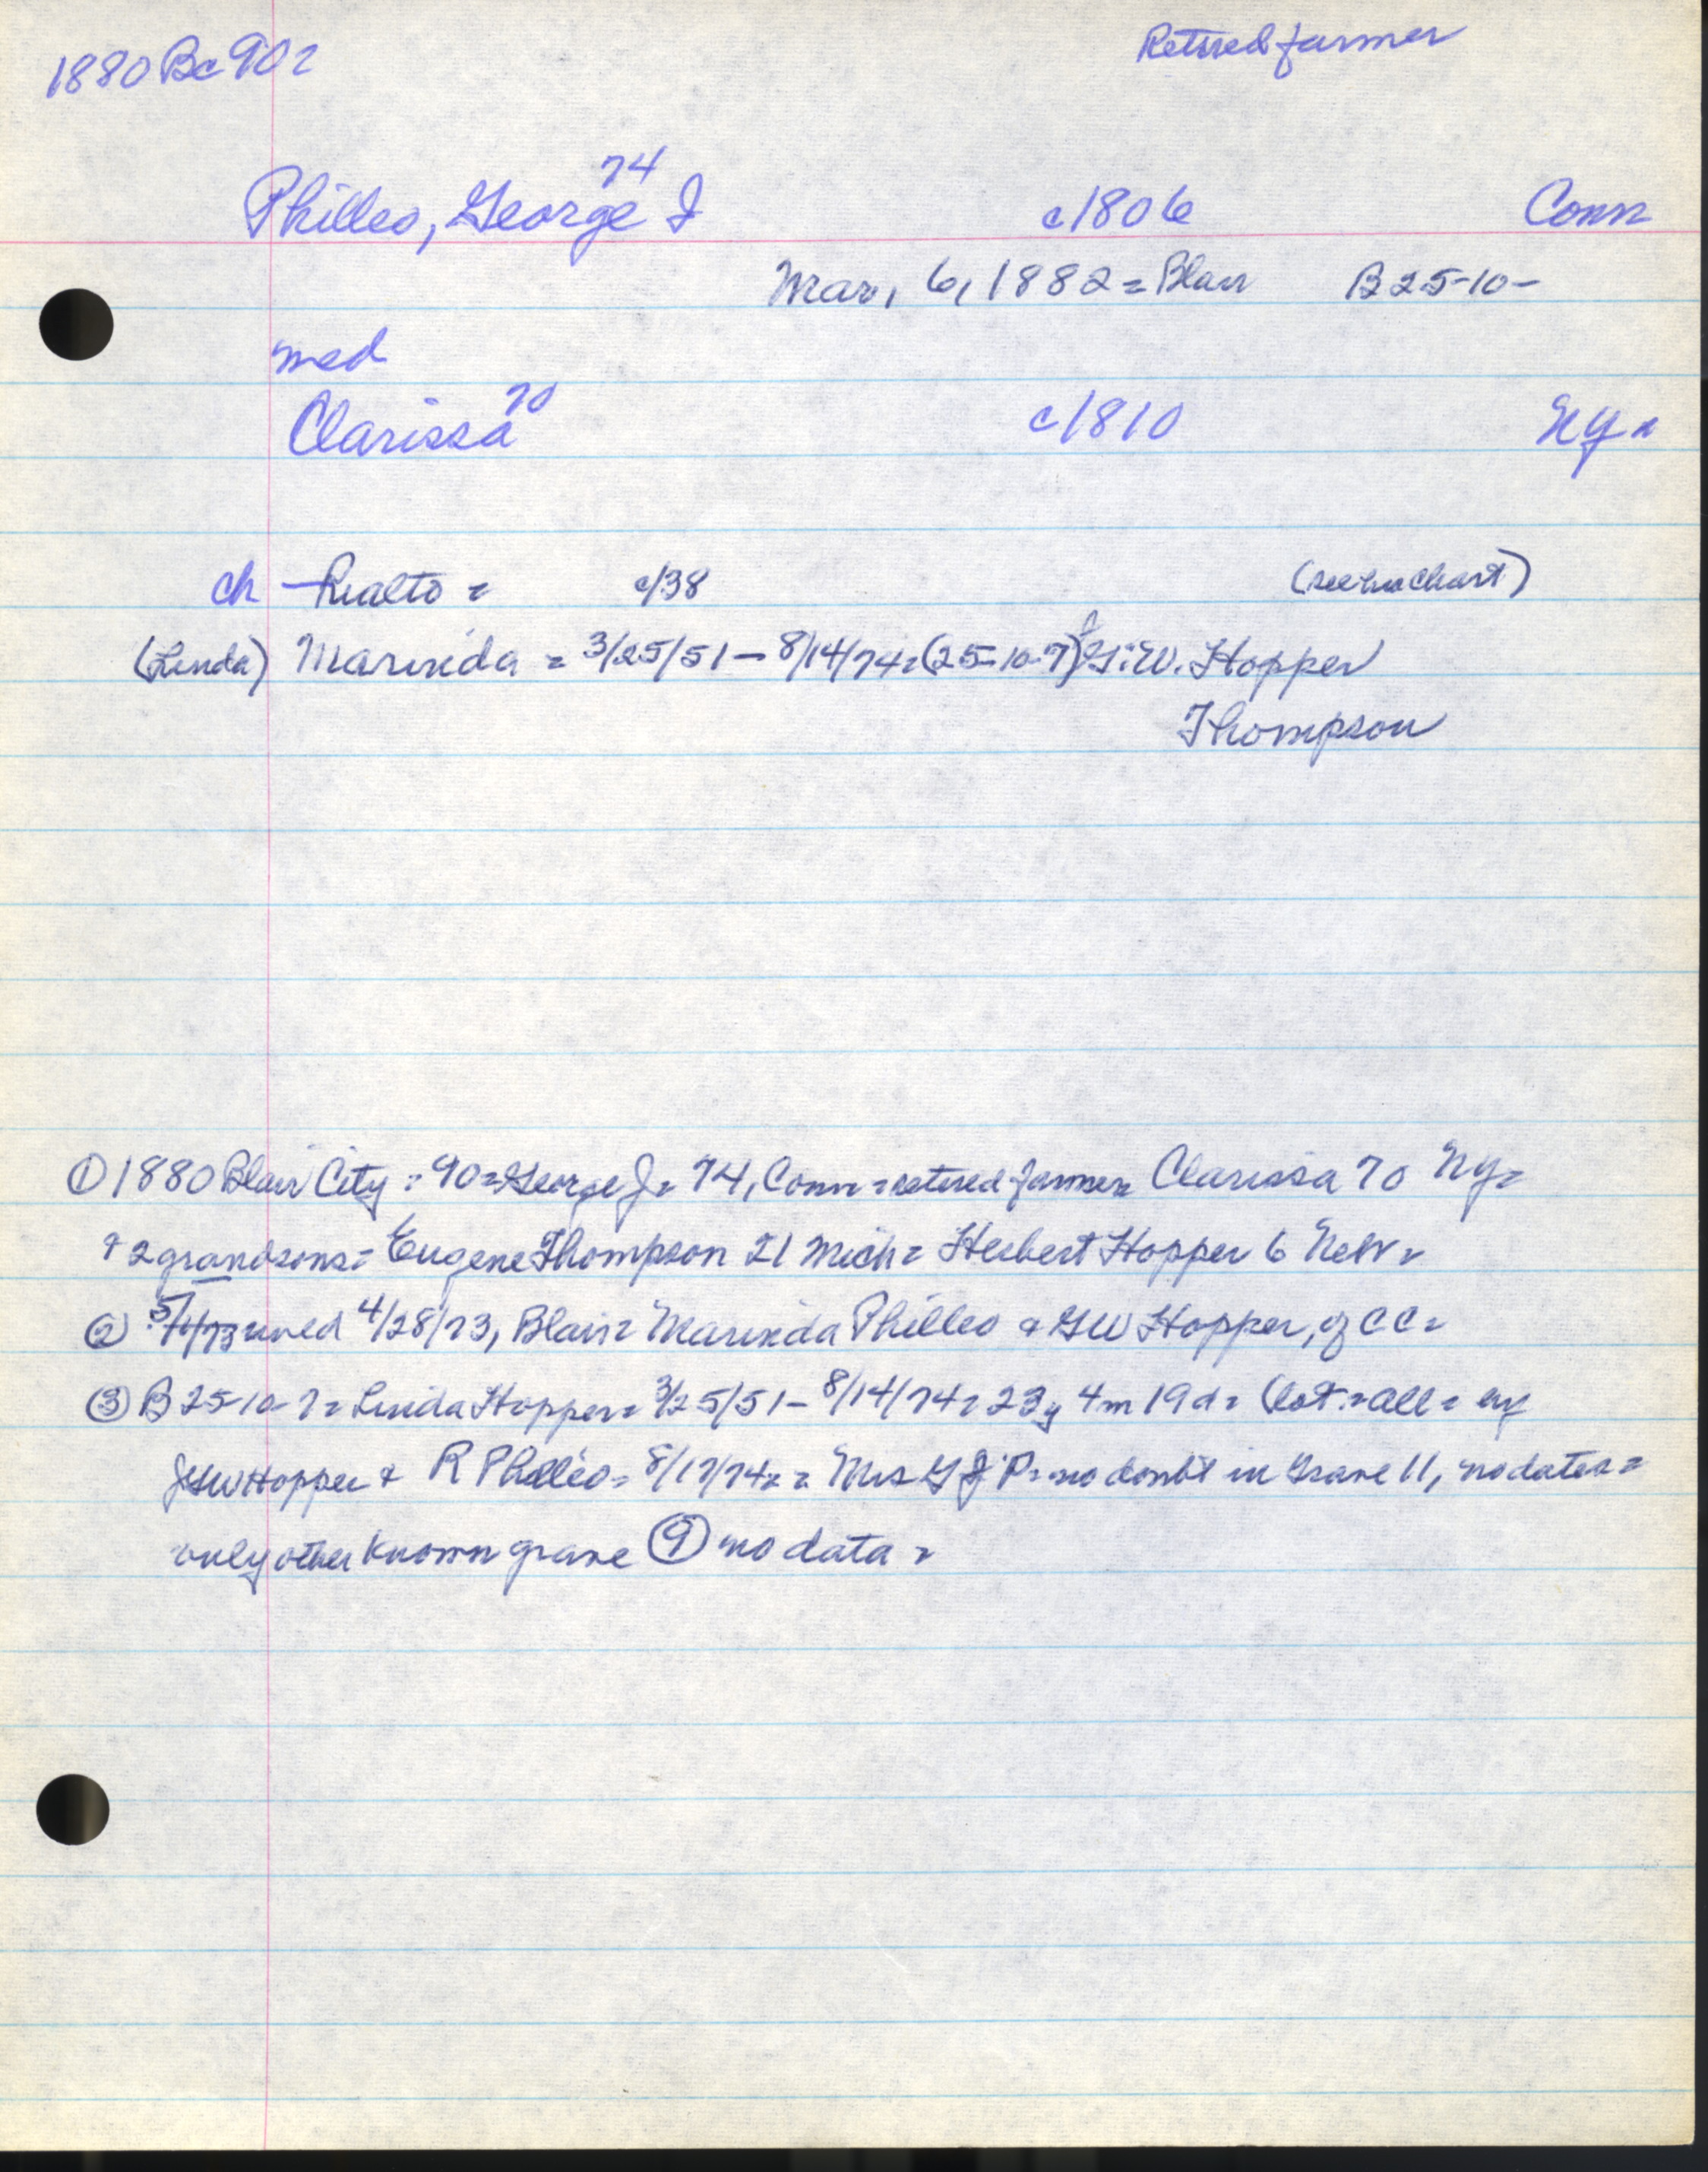 1880 Bc 90=
Retired farmer
74
Philleo, George J c1806 Conn
Mar, 6, 1882 = Blair B 25-10-
med
70
Clarissa c1810 NY=
ch - Rialto = c/38 (see his chart)
(Linda) Marinda = 3/25/51 - 8/14/74 = (25-10-7) G.W. Hopper
Thompson
① 1880 Blair City: 90= George J= 74, Conn= retired farmer= Clarissa 70 NY=
+ 2 grandsons= Eugene Thompson 21 Mich= Herbert Hopper 6 Nebr=
② 5/1/73 med 4/28/73, Blair= Marinda Philleo & GW Hopper, of CC=
③ B 25-10-7= Linda Hopper= 3/25/51 - 8/14/74= 23y 4m 19d= (lot= all=
GW Hopper & R Philleo= 8/17/74= = Mrs G J P= no doubt in Grave 11, no dates=
only other known grave ⑨ no data=